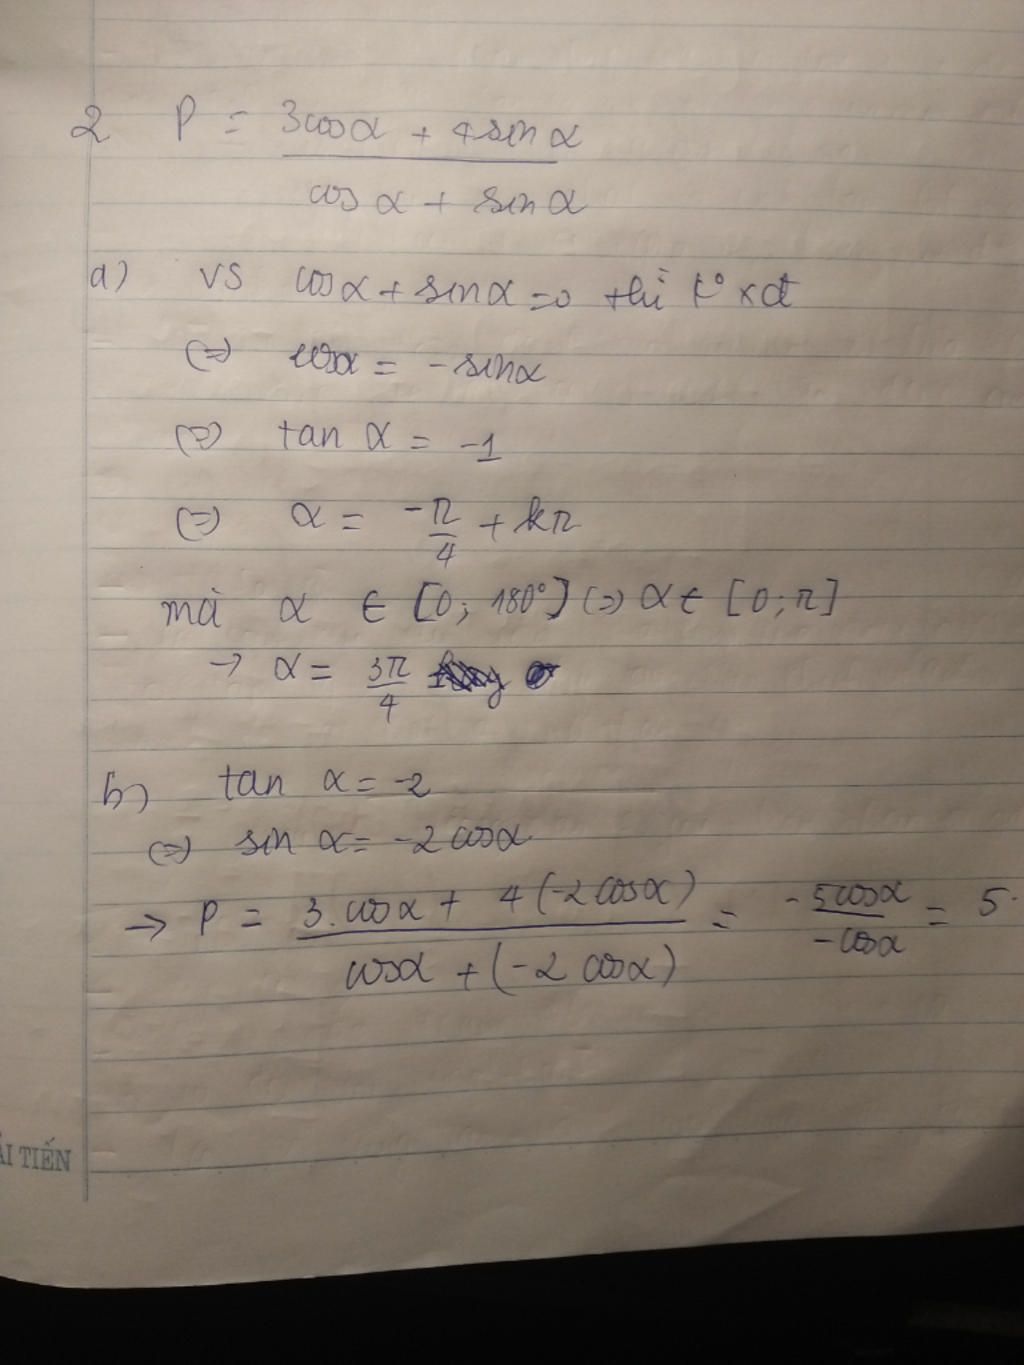 2 P = (3cosα + 4sinα) / (cosα + sinα)
a) VS cosα + sinα = 0 thì k° xđ
(=) cosα = -sinα
(=) tan α = -1
(=) α = -π/4 + kπ
mà α ∈ [0; 180°] (=) α ∈ [0; π]
→ α = 3π/4
b) tan α = -2
(=) sin α = -2cosα
→ P = (3.cosα + 4(-2cosα)) / (cosα + (-2cosα)) = -5cosα / -cosα = 5.
ẢI TIẾN